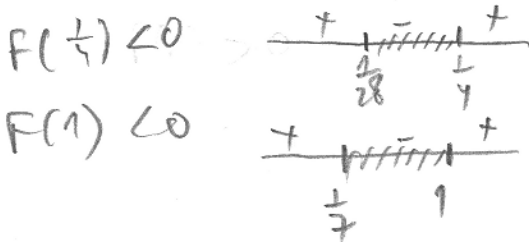 F(1/4) <0
+ - +
1/28 1/4
F(1) <0
+ - +
1/7 1